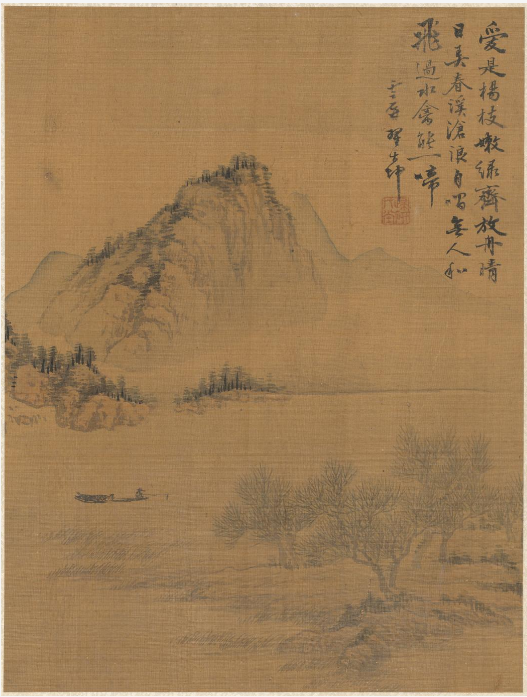 愛是楊枝嫩綠齊放舟晴
日美春溪滄浪自唱無人和
飛過水禽能一啼
云屏翟大坤